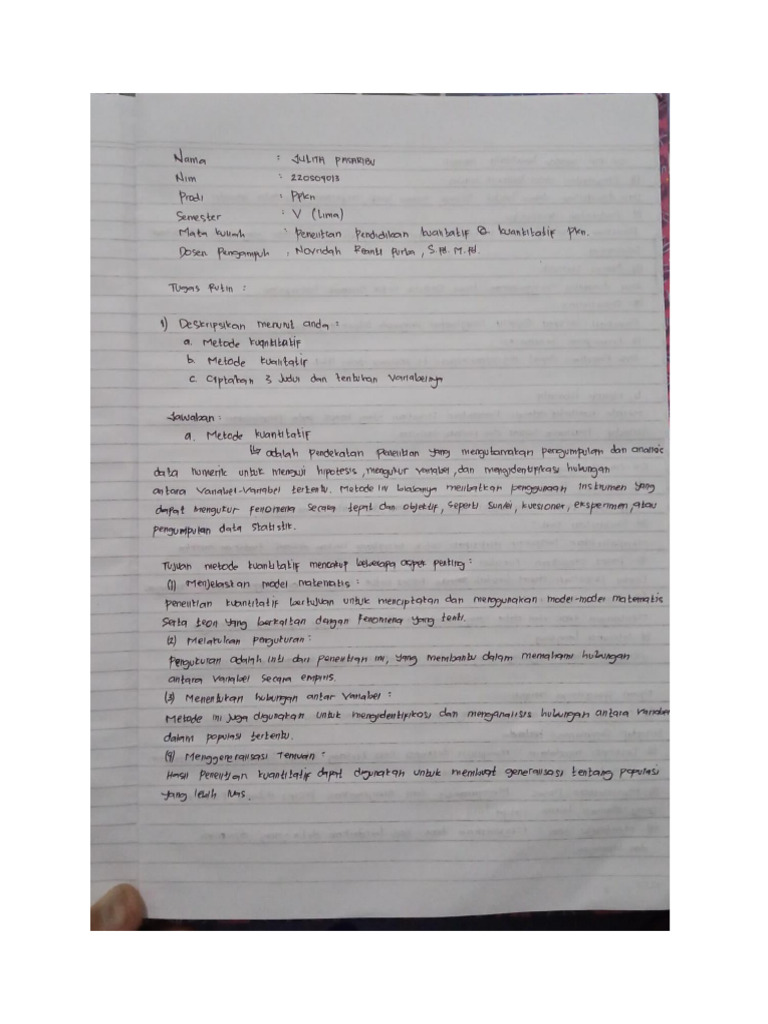 Nama : JULITA PASARIBU
Nim : 220509013
Prodi : PPkn
Semester : V (Lima)
Mata kuliah : Penelitian Pendidikan kualitatif & kuantitatif Pkn.
Dosen Pengampuh : Novridah Reanti Purba, S.Pd. M.Pd.
Tugas Rutin :
1) Deskripsikan menurut anda :
a. Metode kuantitatif
b. Metode kualitatif
c. Ciptakan 3 Judul dan tentukan Variabelnya
Jawaban :
a. Metode kuantitatif
↳ adalah pendekatan Penelitian yang mengutamakan pengumpulan dan analisis
data numerik untuk menguji hipotesis, mengukur variabel, dan mengidentifikasi hubungan
antara Variabel-Variabel tertentu. Metode ini biasanya melibatkan penggunaan instrumen yang
dapat mengukur fenomena secara tepat dan objektif, seperti Survei, kuesioner, eksperimen, atau
pengumpulan data statistik.
Tujuan metode kuantitatif mencakup beberapa aspek penting :
(1) Menjelaskan model matematis :
penelitian kuantitatif bertujuan untuk menciptakan dan menggunakan model-model matematis
Serta teori yang berkaitan dengan fenomena yang teliti.
(2) Melakukan Pengukuran :
Pengukuran adalah inti dari penelitian ini, yang membantu dalam memahami hubungan
antara variabel secara empiris.
(3) Menentukan hubungan antar Variabel :
Metode ini juga digunakan untuk mengidentifikasi dan menganalisis hubungan antara variabel
dalam populasi tertentu.
(4) Menggeneralisasi Temuan :
Hasil Penelitian kuantitatif dapat digunakan untuk membuat generalisasi tentang populasi
yang lebih luas.